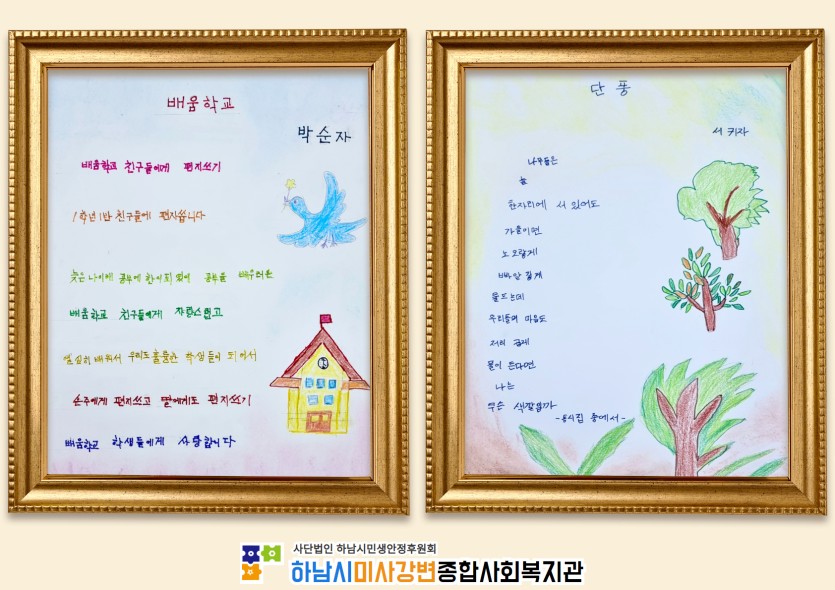 배움학교
박순자
배움학교 친구들에게 편지쓰기
1학년 1반 친구들에 편지씁니다
늦은 나이에 공부에 한이 되어 공부을 배우러온
배움학교 친구들에게 자랑스럽고
열심히 배워서 우리도 훌룽한 학생들이 되어서
손주에게 편지쓰고 딸에게도 편지쓰기
배움학교 학생들에게 사랑합니다
단풍
서키자
나무들은
늘
한자리에 서 있어도
가을이면
노오랗게
빠알갛게
물드는데
우리들의 마음도
저리 곱게
물이 든다면
나는
무슨 색깔일가
-동시집 중에서-
사단법인 하남시민생안정후원회
하남시미사강변종합사회복지관